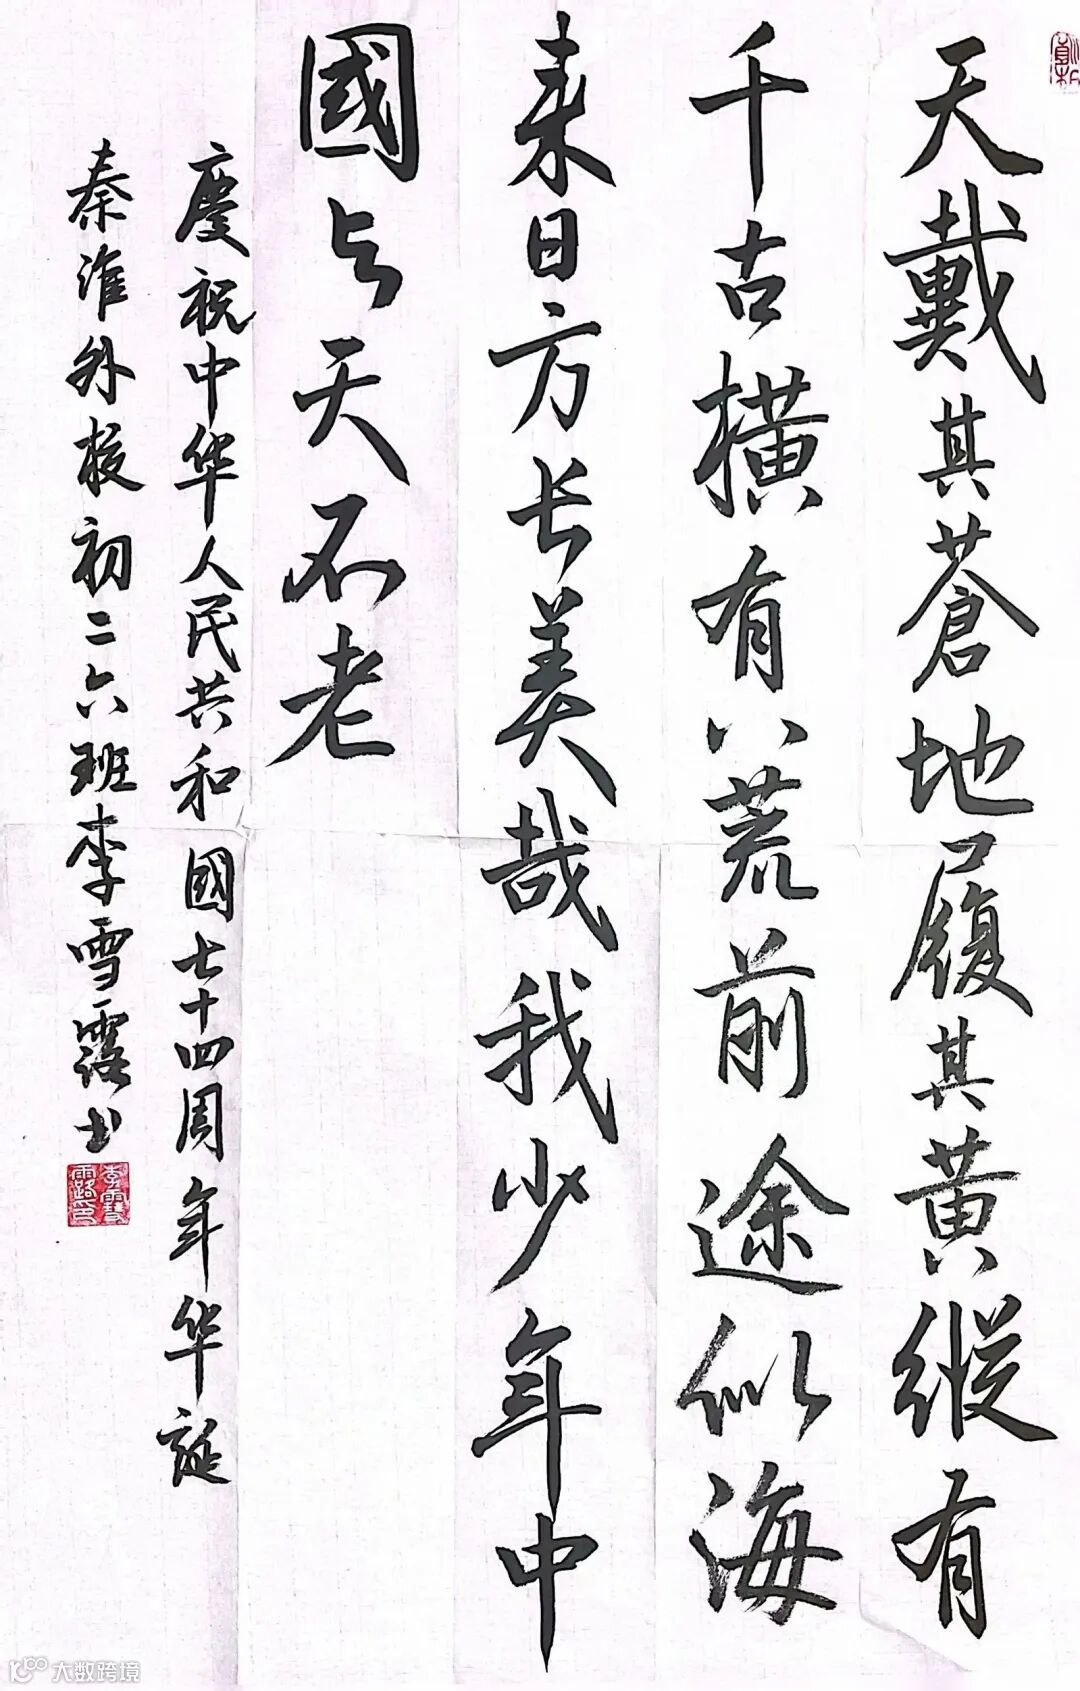 天戴其蒼地履其黄縱有
千古横有八荒前途似海
来日方长美哉我少年中
國与天不老
慶祝中华人民共和國七十四周年华誕
秦淮外校初二六班李雪露书
李雪露印
大数跨境